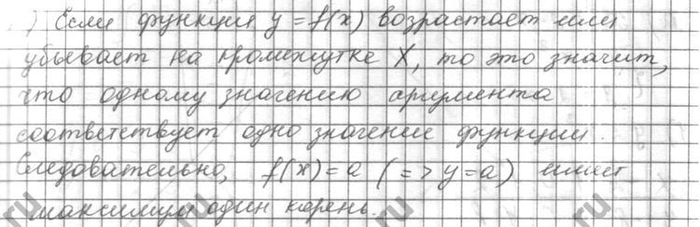 .) Если функция y = f(x) возрастает или
убывает на промежутке X, то это значит,
что одному значению аргумента
соответствует одно значение функции.
Следовательно, f(x) = a (=> y = a) имеет
максимум один корень.
ru
ru
ru